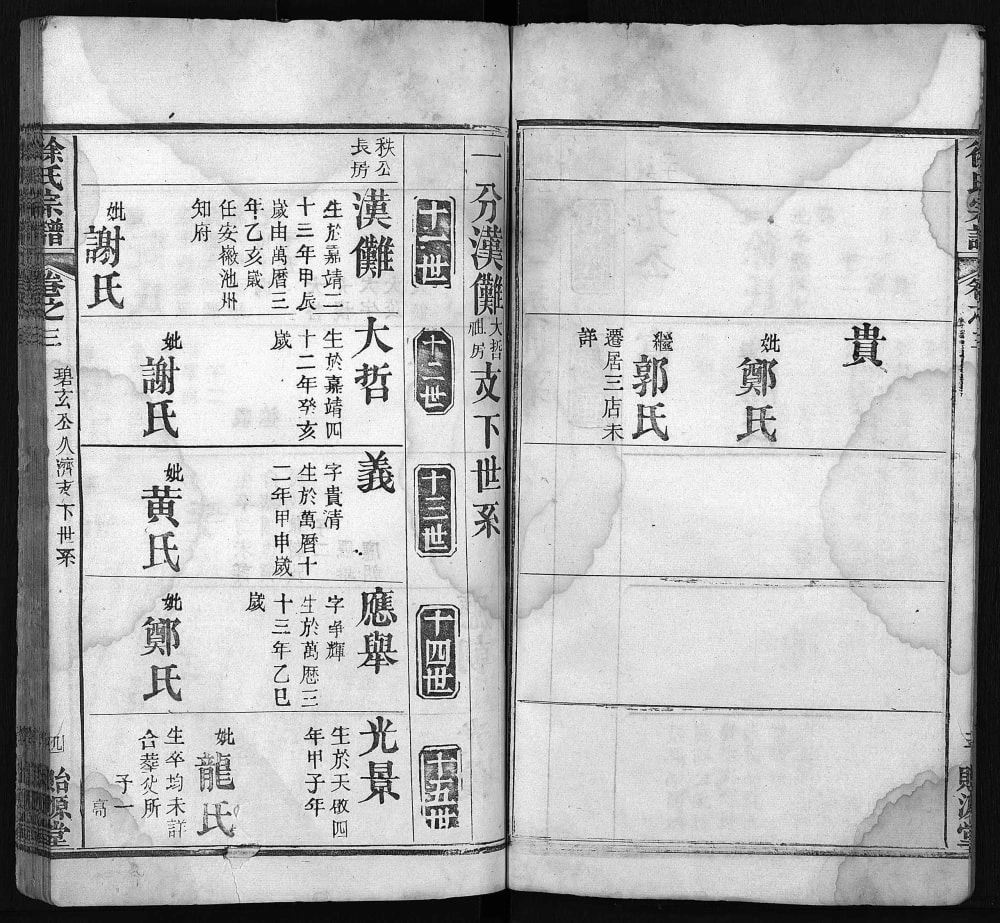 徐氏宗譜
卷之三
貴
妣鄭氏
繼郭氏
遷居三店未
詳
貽源堂
一分漢儺大哲祖房支下世系
十一世
十二世
十三世
十四世
十五世
秩公
長房
漢儺
生於嘉靖二
十三年甲辰
歲由萬曆三
年乙亥歲
任安徽池州
知府
妣謝氏
大哲
生於嘉靖四
十二年癸亥
歲
妣謝氏
義
字貴清
生於萬曆十
二年甲申歲
妣黃氏
應舉
字爭輝
生於萬曆三
十三年乙巳
歲
妣鄭氏
光景
生於天啟四
年甲子年
妣龍氏
生卒均未詳
合葬父所
子一
高
徐氏宗譜
卷之三
碧玄公久濟支下世系
貽源堂